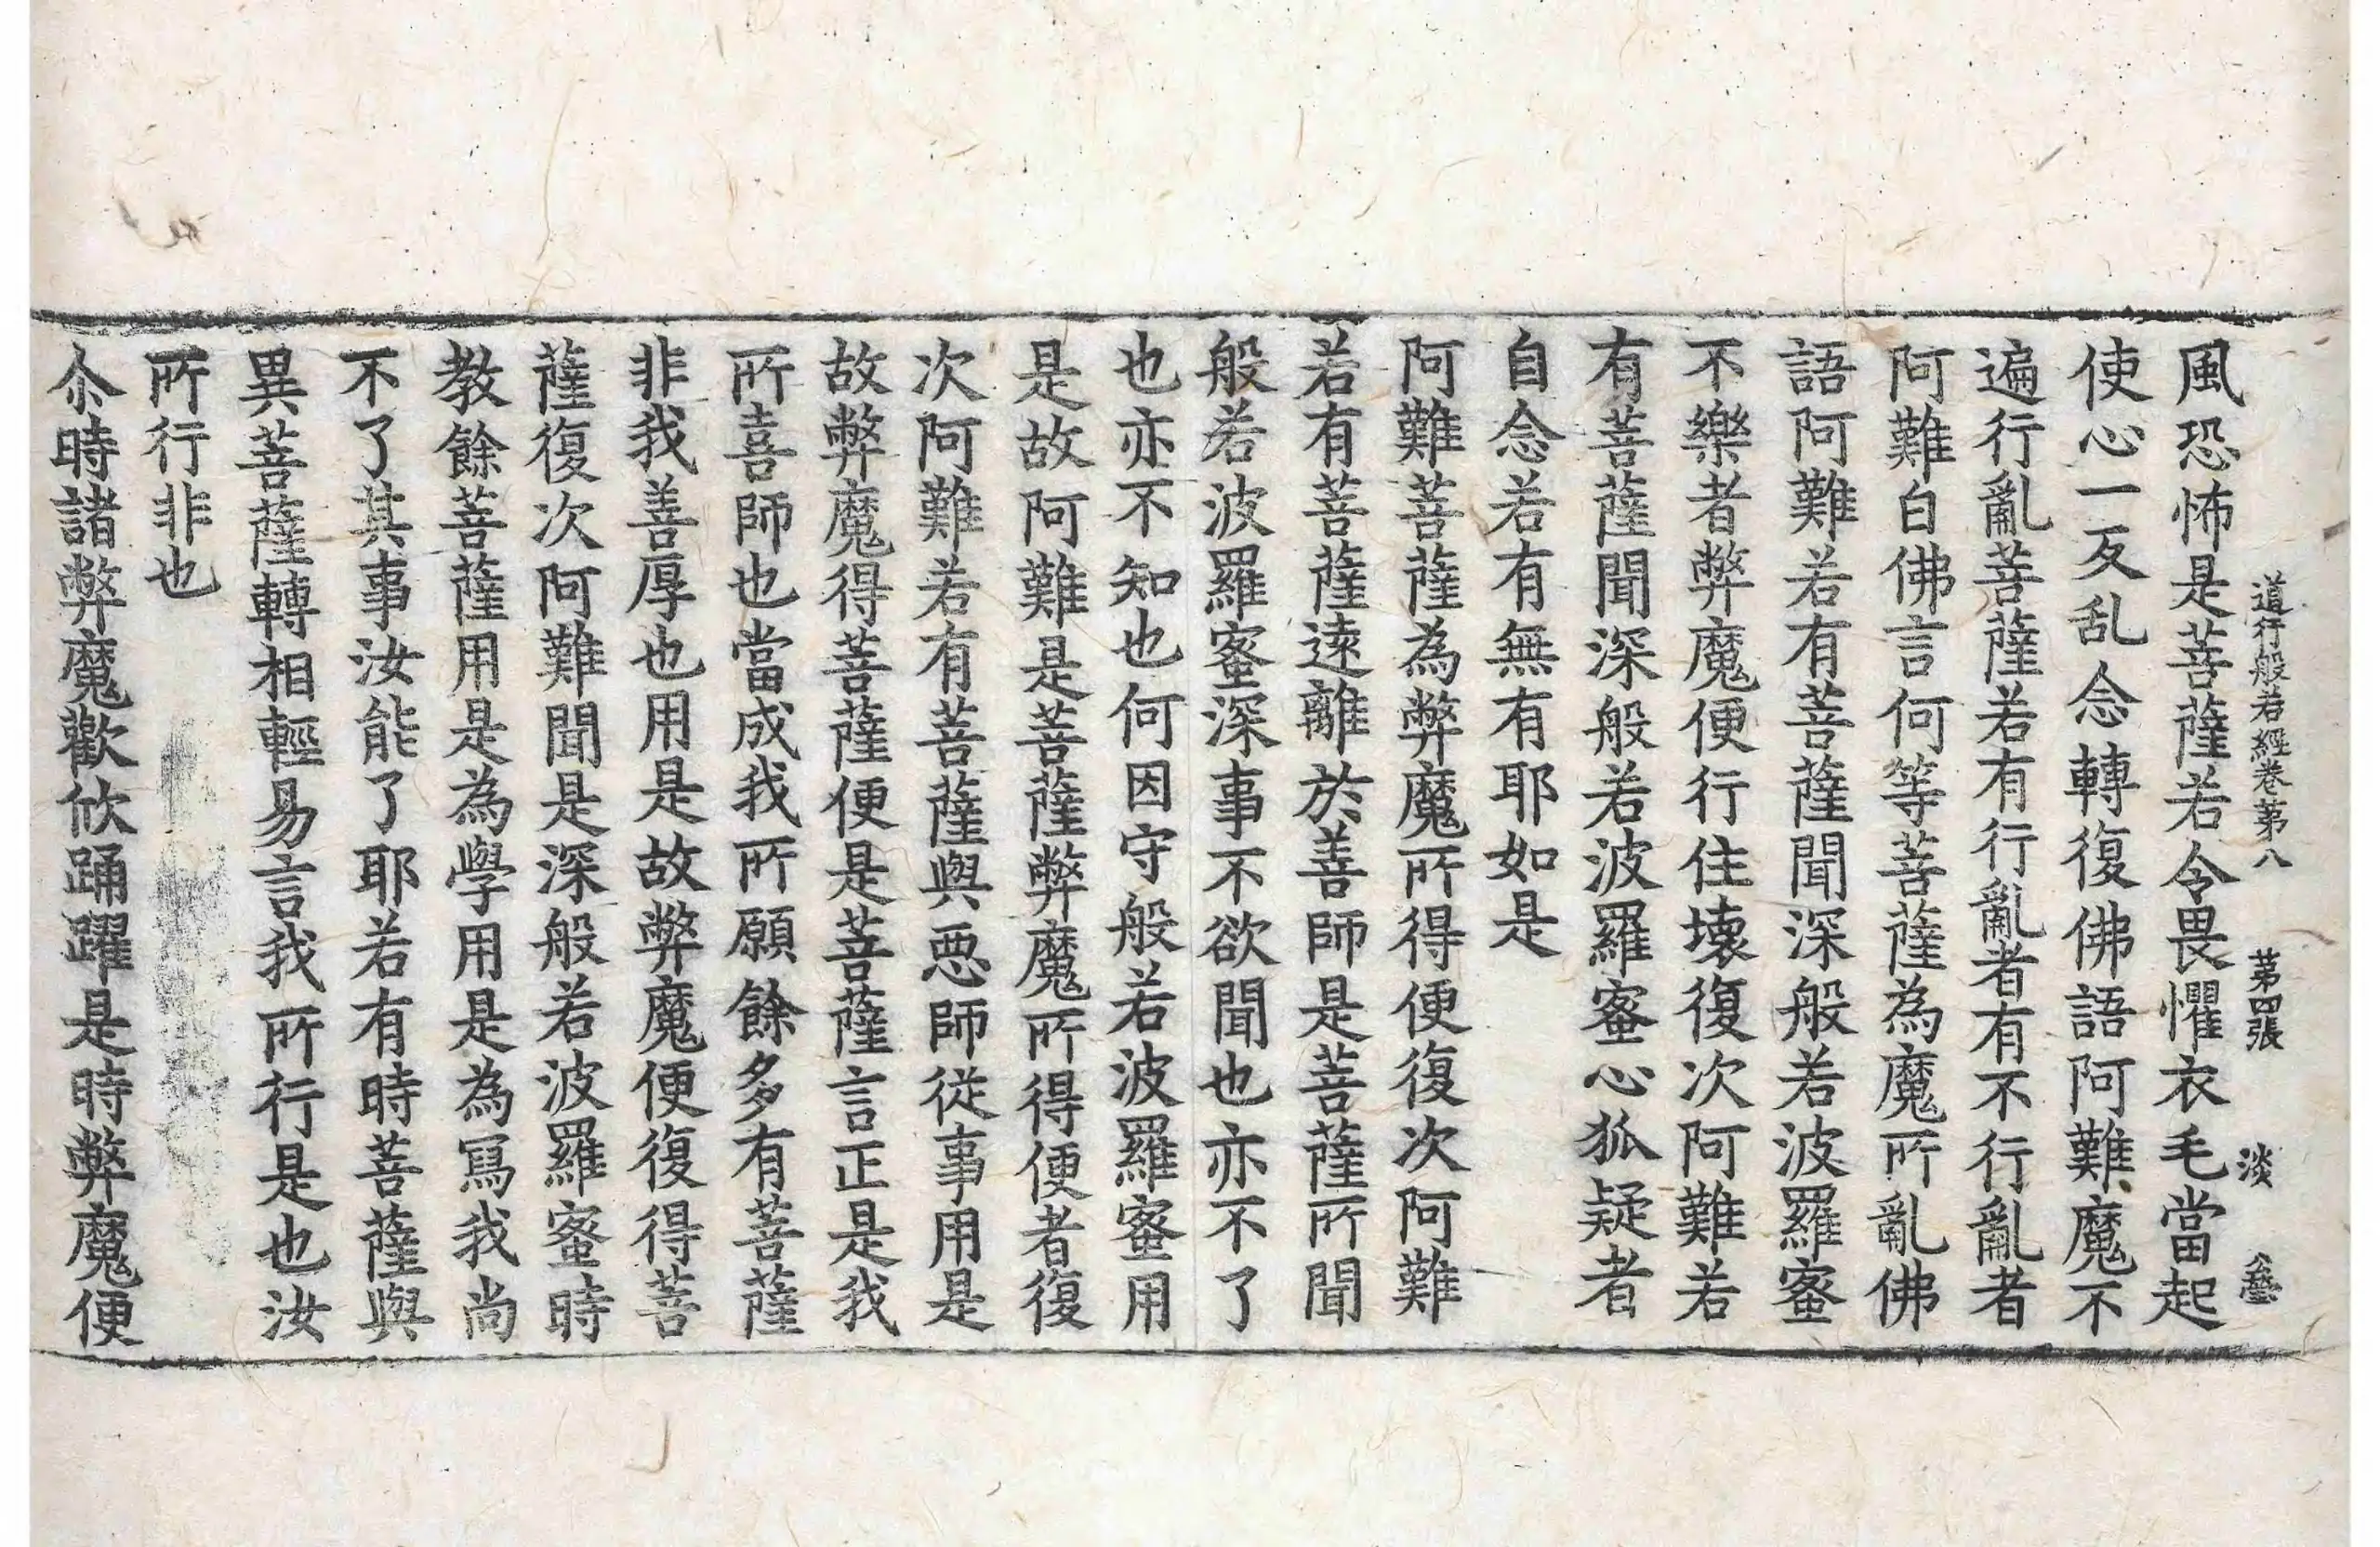 道行般若經卷第八 第四張 淡
風恐怖是菩薩若令畏懼衣毛當起
使心一反乱念轉復佛語阿難魔不
遍行亂菩薩若有行亂者有不行亂者
阿難白佛言何等菩薩為魔所亂佛
語阿難若有菩薩聞深般若波羅蜜
不樂者弊魔便行住壞復次阿難若
有菩薩聞深般若波羅蜜心狐疑者
自念若有無有耶如是
阿難菩薩為弊魔所得便復次阿難
若有菩薩遠離於善師是菩薩所聞
般若波羅蜜深事不欲聞也亦不了
也亦不知也何因守般若波羅蜜用
是故阿難是菩薩弊魔所得便者復
次阿難若有菩薩與惡師從事用是
故弊魔得菩薩便是菩薩言正是我
所喜師也當成我所願餘多有菩薩
非我善厚也用是故弊魔便復得菩
薩復次阿難聞是深般若波羅蜜時
教餘菩薩用是為學用是為寫我尚
不了其事汝能了耶若有時菩薩與
異菩薩轉相輕易言我所行是也汝
所行非也
尒時諸弊魔歡欣踊躍是時弊魔便